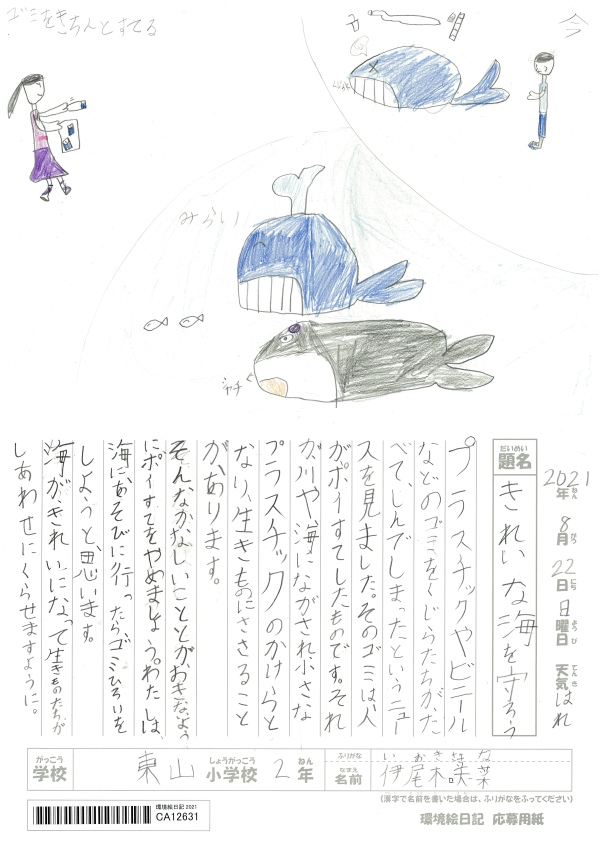 ゴミをきちんとすてる
今
みらい
シャチ
2021年 8月 22日 日曜日 天気 はれ
ねん がつ にち ようび てんき
だいめい
題名
きれいな海を守ろう
プラスチックやビニール
などのゴミをくじらたちがた
べて、しんでしまったというニュー
スを見ました。そのゴミは、人
がポイすてしたものです。それ
が、川や海にながされ小さな
プラスチックのかけらと
なり、生きものにささること
が、あります。
そんなかなしいことがおきないよう
にポイすてをやめましょう。わたしは、
海にあそびに行ったら、ゴミひろいを
しようと、思います。
海がきれいになって生きものたちが
しあわせにくらせますように。
がっこう しょうがっこう ねん
学校 東山 小学校 2年
ふりがな い お き な
なまえ
名前 伊尾木 咲菜
(漢字で名前を書いた場合は、ふりがなをふってください)
環境絵日記 応募用紙
環境絵日記 2021
CA12631